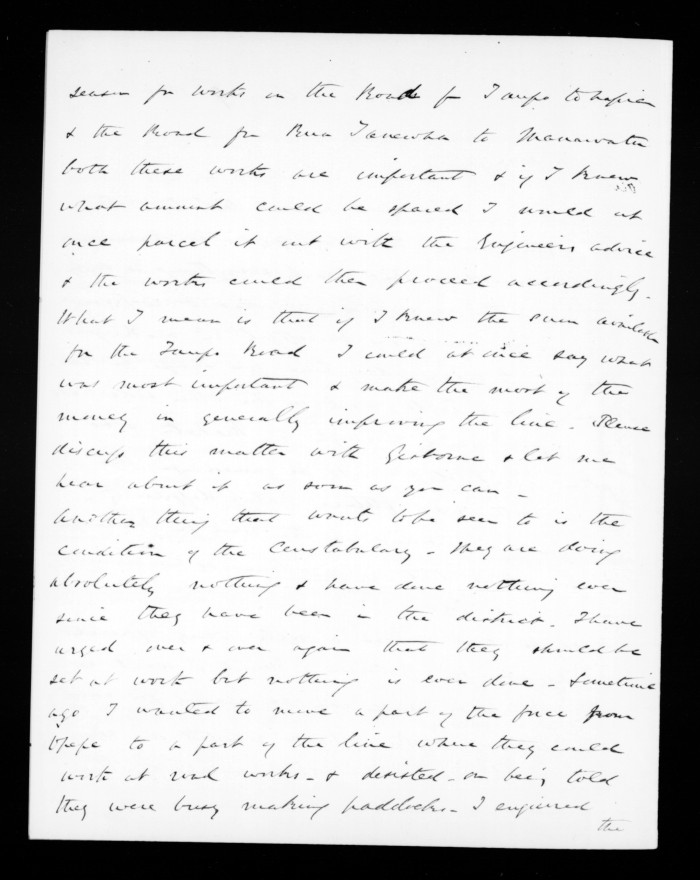 season for works on the Road fr Taupo to Napier
& the Road fr Rua Tanewha to Manawatu
both these works are important & if I knew
what amount could be spared I would at
once parcel it out with the Engineers advice
& the works could then proceed accordingly.
What I mean is that if I knew the sum available
for the Taupo Road I could at once say what
was most important & make the most of the
money in generally improving the line - Please
discuss this matter with Gisborne & let me
hear about it as soon as you can -
Another thing that wants to be seen to is the
condition of the Constabulary - They are doing
absolutely nothing & have done nothing ever
since they have been in the district. I have
urged over & over again that they should be
set at work but nothing is ever done - Sometime
ago I wanted to move a part of the force from
Opepe to a part of the line where they could
work at road works - & desisted - on being told
they were busy making paddocks - I enquired
the